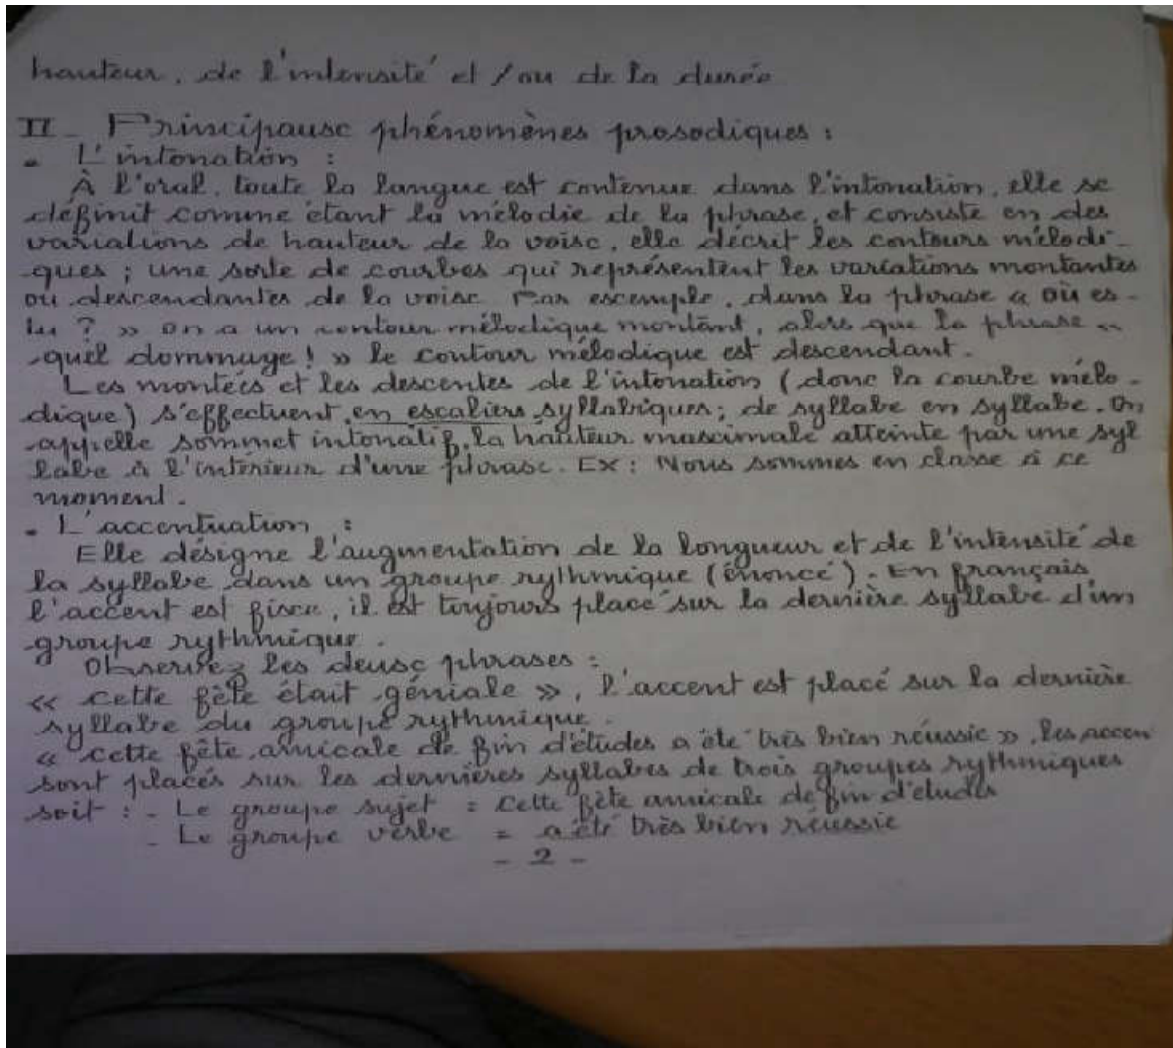 hauteur, de l'intensité et / ou de la durée
II - Principaux phénomènes prosodiques :
- L'intonation :
À l'oral, toute la langue est contenue dans l'intonation, elle se
définit comme étant la mélodie de la phrase, et consiste en des
variations de hauteur de la voix, elle décrit les contours mélodi-
-ques ; une sorte de courbes qui représentent les variations montantes
ou descendantes de la voix. Par exemple, dans la phrase « où es-
tu ? » on a un contour mélodique montant, alors que la phrase «
quel dommage ! » le contour mélodique est descendant.
Les montées et les descentes de l'intonation (donc la courbe mélo-
dique) s'effectuent en escaliers syllabiques; de syllabe en syllabe. On
appelle sommet intonatif, la hauteur maximale atteinte par une syl
labe à l'intérieur d'une phrase. Ex : Nous sommes en classe à ce
moment.
- L'accentuation :
Elle désigne l'augmentation de la longueur et de l'intensité de
la syllabe dans un groupe rythmique (énoncé). En français,
l'accent est fixe, il est toujours placé sur la dernière syllabe d'un
groupe rythmique.
Observez les deux phrases :
« cette fête était géniale », l'accent est placé sur la dernière
syllabe du groupe rythmique.
« cette fête amicale de fin d'études a été très bien réussie », les accen
sont placés sur les dernières syllabes de trois groupes rythmiques
soit : - Le groupe sujet = cette fête amicale de fin d'études
- Le groupe verbe = a été très bien réussie
- 2 -